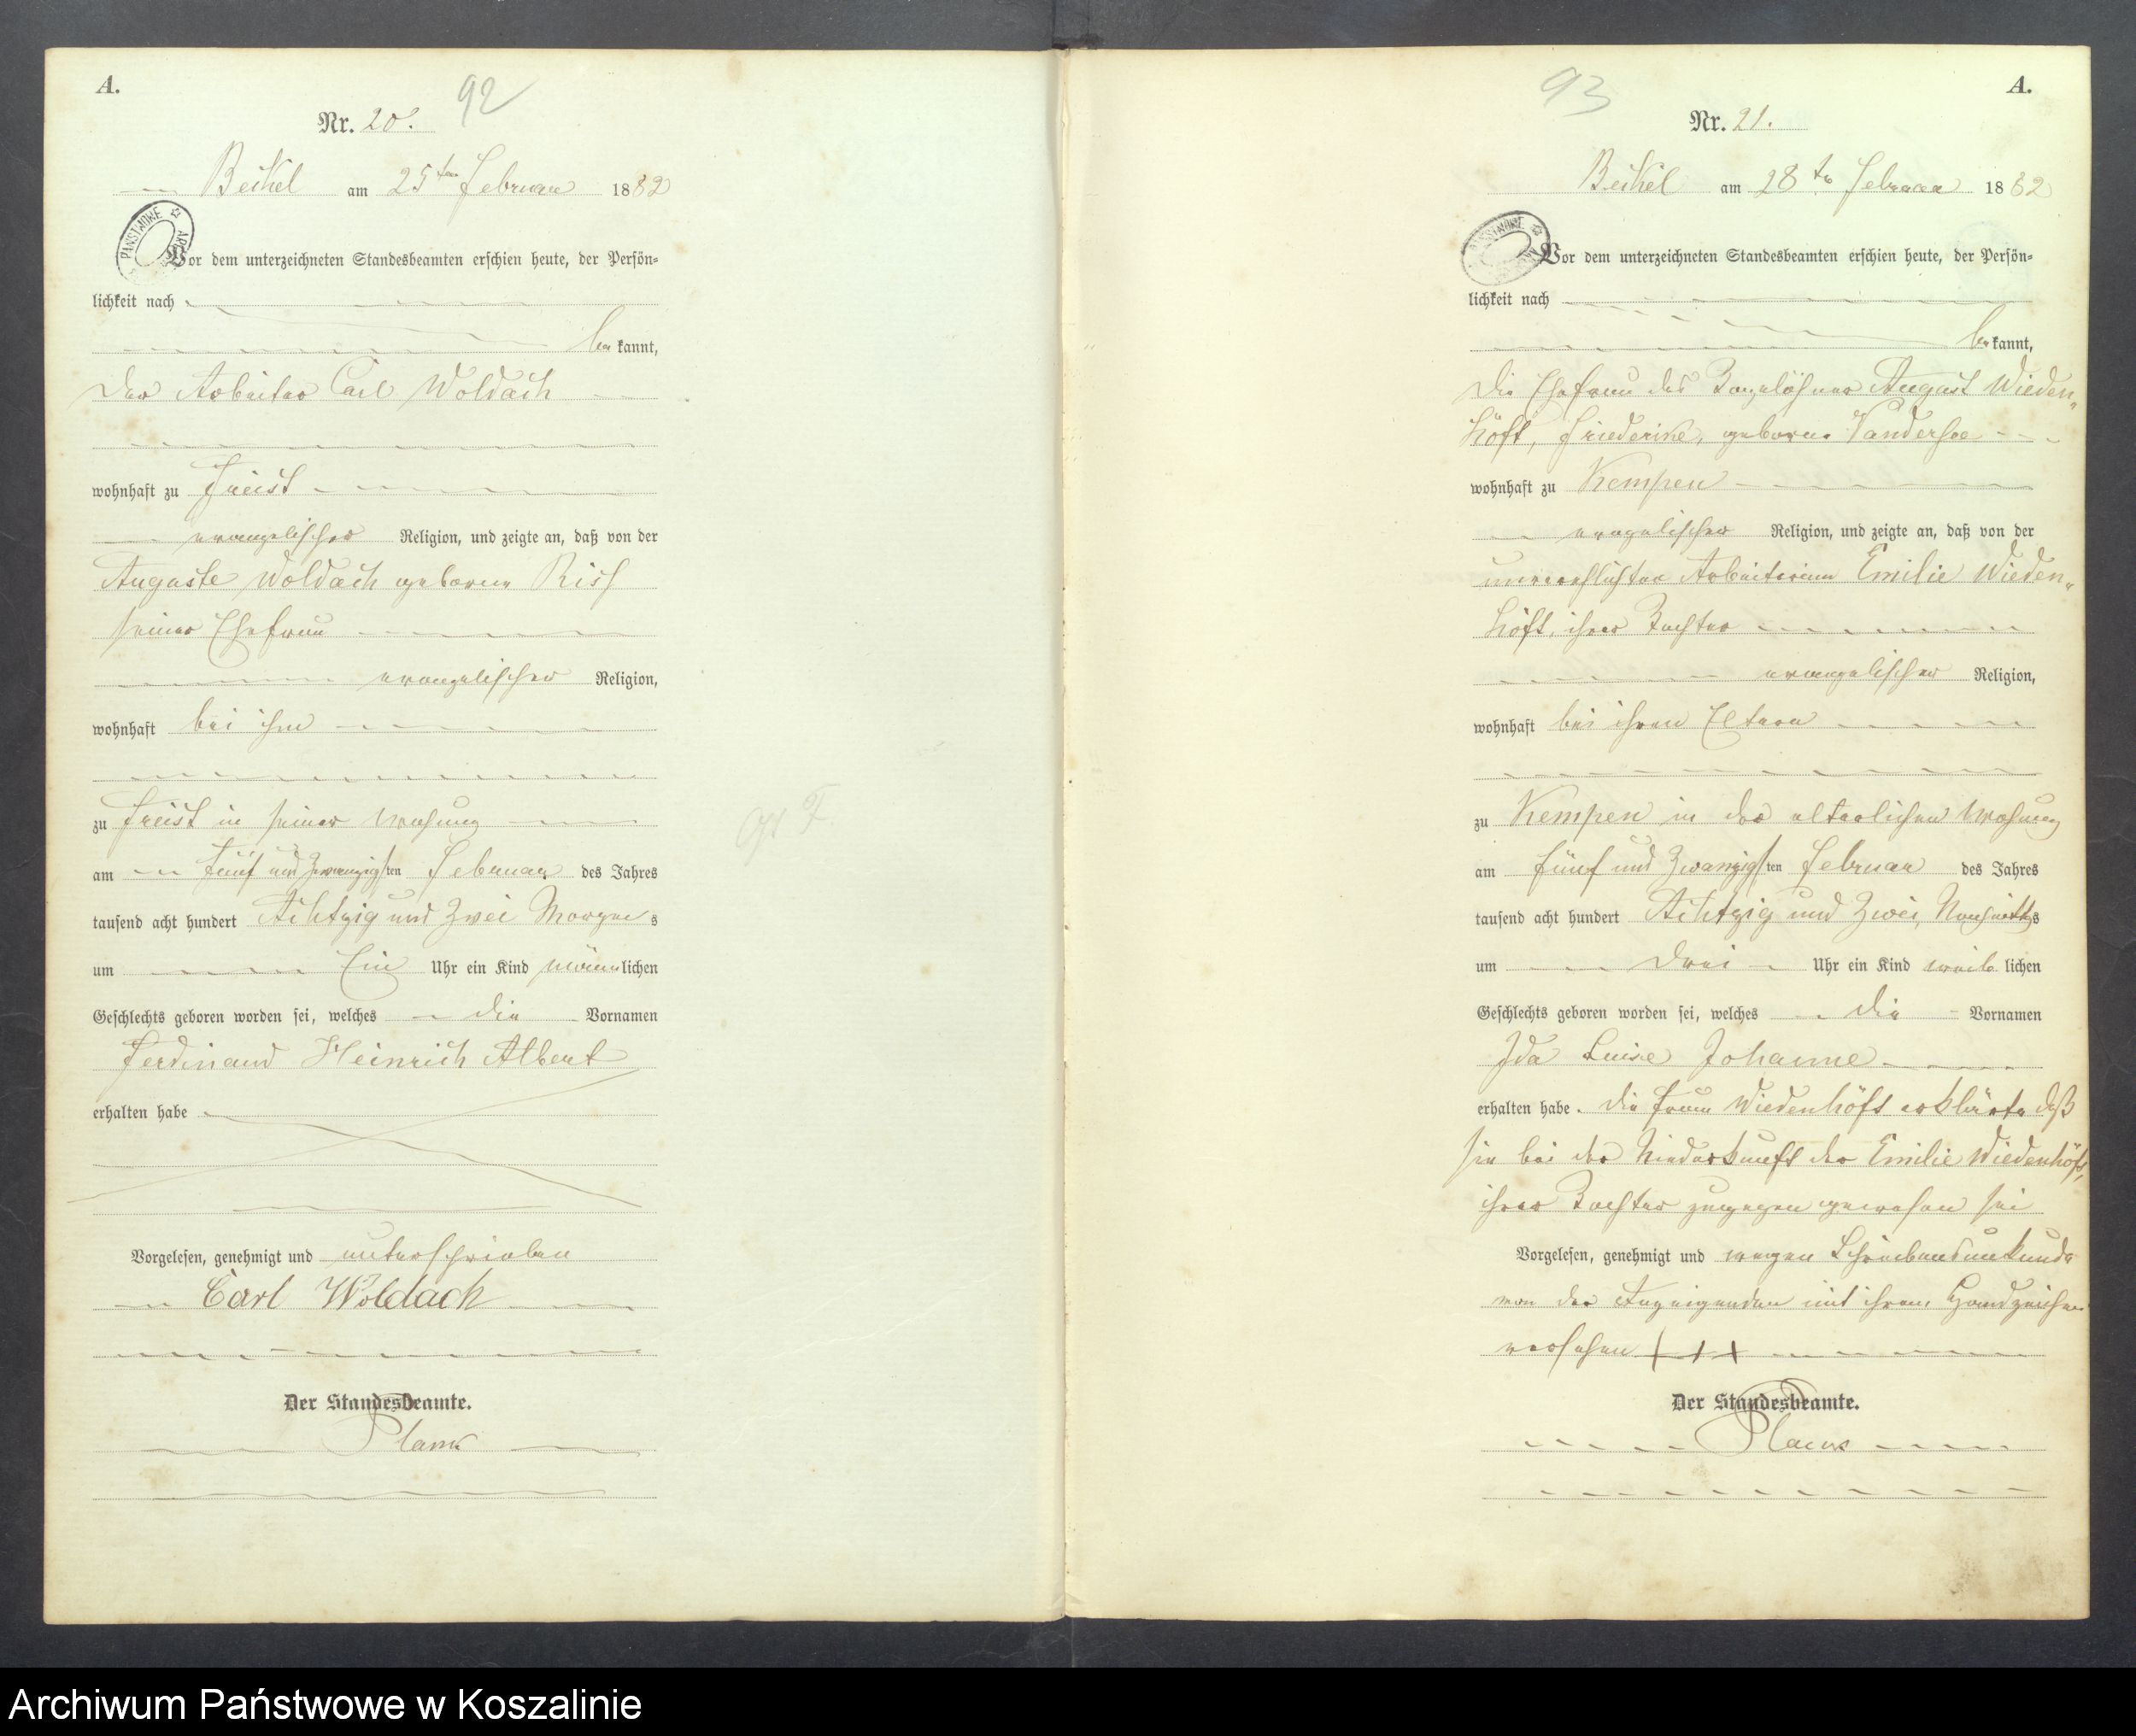 A.
92
Nr. 20.
Beikel am 25ten Februar 1882
PAŃSTWOWE
Vor dem unterzeichneten Standesbeamten erschien heute, der Persön=
lichkeit nach
be kannt,
Der Arbeiter Carl Woldach
wohnhaft zu Freist
evangelischer Religion, und zeigte an, daß von der
Auguste Woldach geborene
seiner Ehefrau
evangelischer Religion,
wohnhaft bei ihm
zu Freist in seiner Wohnung
am fünf und zwanzigsten Februar des Jahres
tausend acht hundert Achtzig und Zwei Morgens
um Ein Uhr ein Kind männlichen
Geschlechts geboren worden sei, welches die Vornamen
Ferdinand Heinrich Albert
erhalten habe
Vorgelesen, genehmigt und unterschrieben
Carl Woldach
Der Standesbeamte.
93
A.
Nr. 21.
Beikel am 28ten Februar 1882
Vor dem unterzeichneten Standesbeamten erschien heute, der Persön=
lichkeit nach
be kannt,
Die Ehefrau des Tagelöhner August Wieden„
höft, Friederike, geborne
wohnhaft zu Kempen
Religion, und zeigte an, daß von der
unverehelichten Arbeiterinn Emilie Wieden„
höft, ihrer Tochter
evangelischer Religion,
wohnhaft bei ihren Eltern
zu Kempen in der elterlichen Wohnung
am fünf und Zwanzigsten Februar des Jahres
tausend acht hundert Achtzig und Zwei, Nachmittags
um Drei Uhr ein Kind weiblichen
Geschlechts geboren worden sei, welches die Vornamen
Ida Luise Johanne
erhalten habe. Die Frau Wiedenhöft erklärte daß
sie bei der Niederkunft der Emilie Wiedenhöft,
ihrer Tochter zugegen gewesen sei
Vorgelesen, genehmigt und wegen Schreibensunkunde
von der Anzeigenden mit ihrem Handzeichen
versehen +++
Der Standesbeamte.
Archiwum Państwowe w Koszalinie